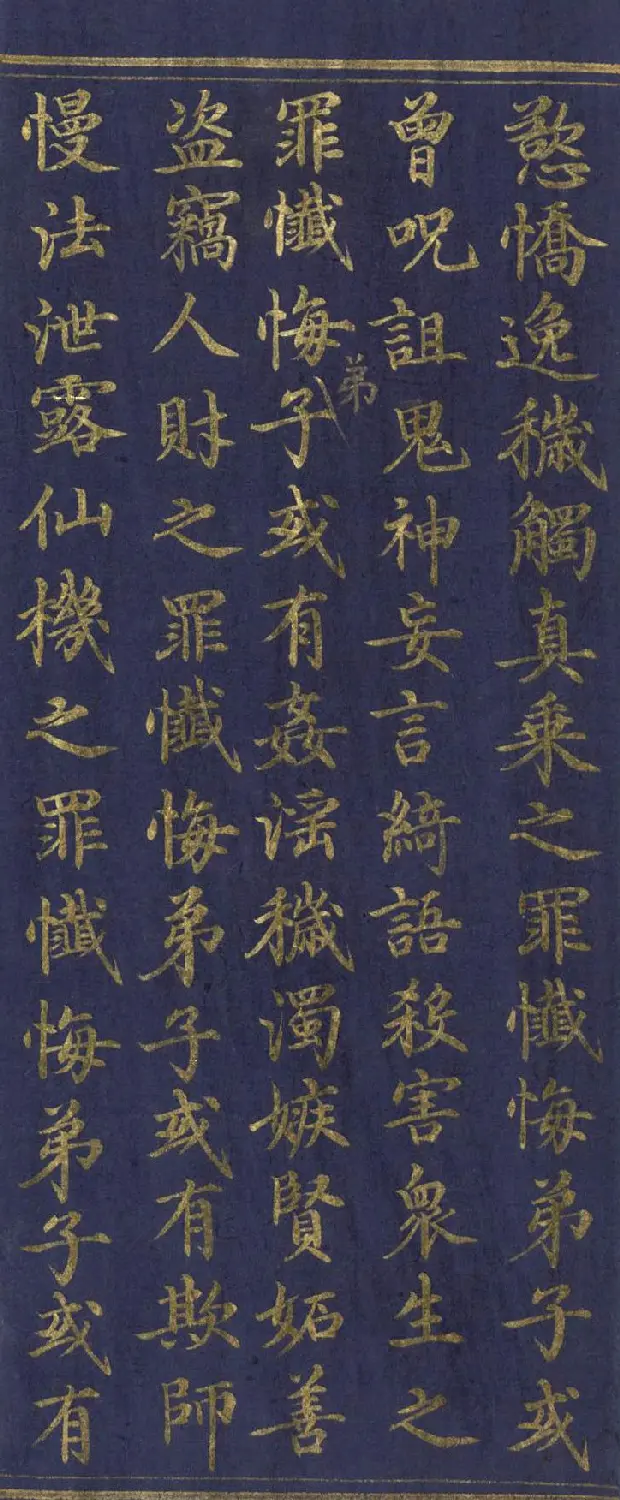 愆憍逸穢觸真乗之罪懺悔弟子或
曾呪詛鬼神妄言綺語殺害衆生之
罪懺悔弟子或有姦淫穢濁嫉賢妬善
盗竊人財之罪懺悔弟子或有欺師
慢法泄露仙機之罪懺悔弟子或有